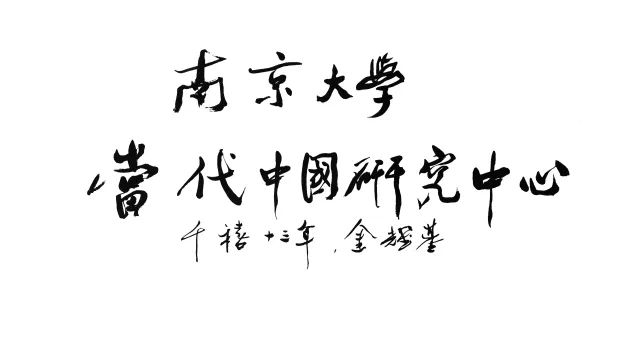 南京大學
當代中國研究中心
千禧十三年，金耀基